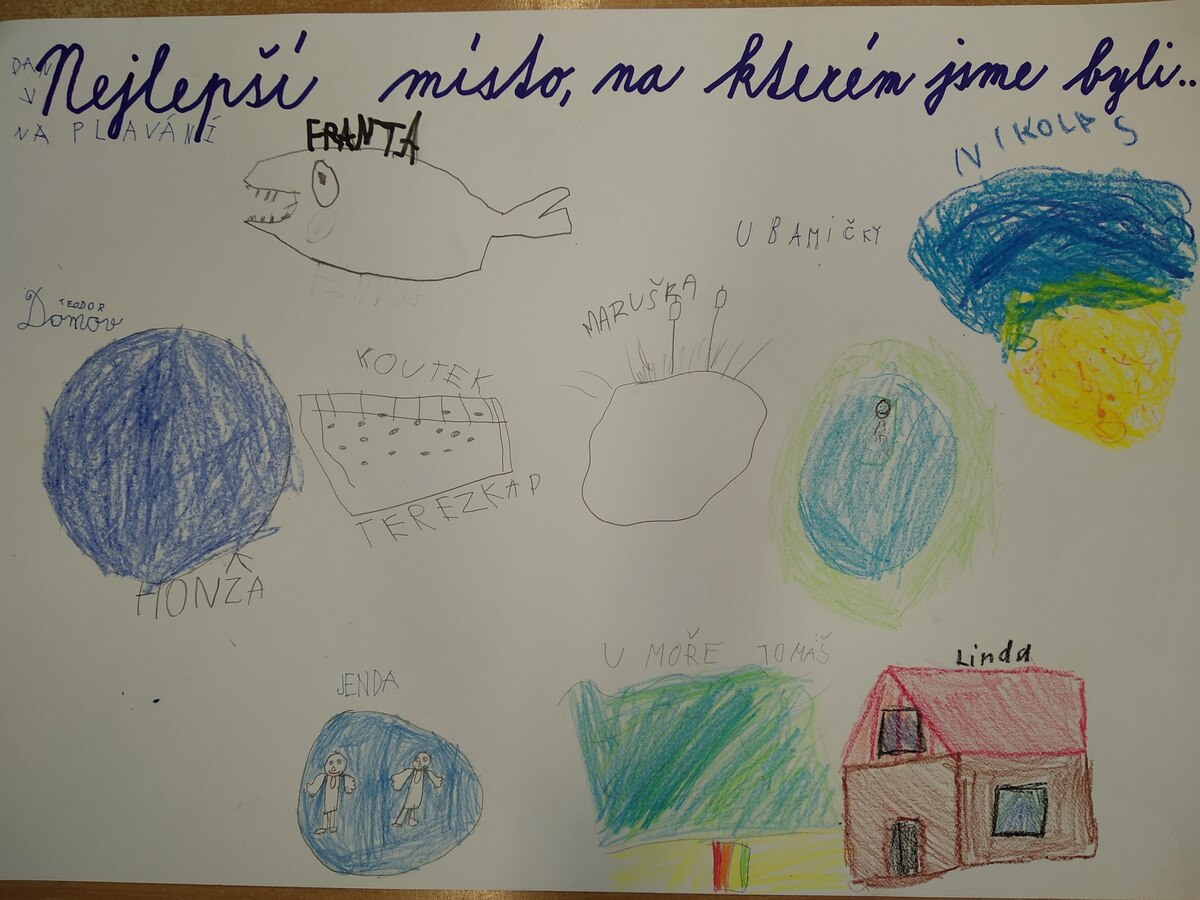 Nejlepší místo, na kterém jsme byli..
DAN
V
NA PLAVÁNÍ
FRANTA
NIKOLAS
U BAMIČKY
TEODOR
Domov
MARUŠKA
KOUTEK
TEREZKA P
HONZA
JENDA
U MOŘE TOMÁŠ
Linda